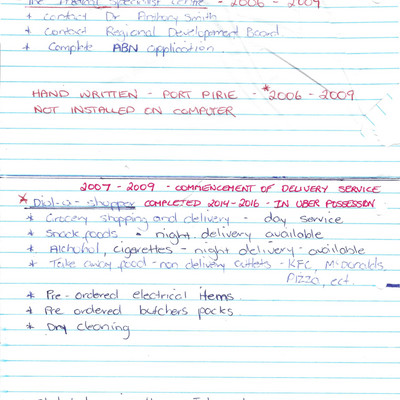 The Medical Specialist Centre - 2006 - 2009
* Contact Dr Anthony Smith
* Contact Regional Development Board
* Complete ABN application.
HAND WRITTEN - PORT PIRIE - *2006 - 2009
NOT INSTALLED ON COMPUTER
2007 - 2009 - COMMENCEMENT OF DELIVERY SERVICE
* Dial-a-shopper COMPLETED 2014-2016 - IN UBER POSSESSION
* Grocery shopping and delivery - day service
* Snack foods - night delivery available
* Alchohol, cigarettes - night delivery - available
* Take away food - non delivery outlets - KFC, McDonalds,
Pizza, ect.
* Pre-ordered electrical items.
* Pre ordered butchers packs.
* Dry cleaning